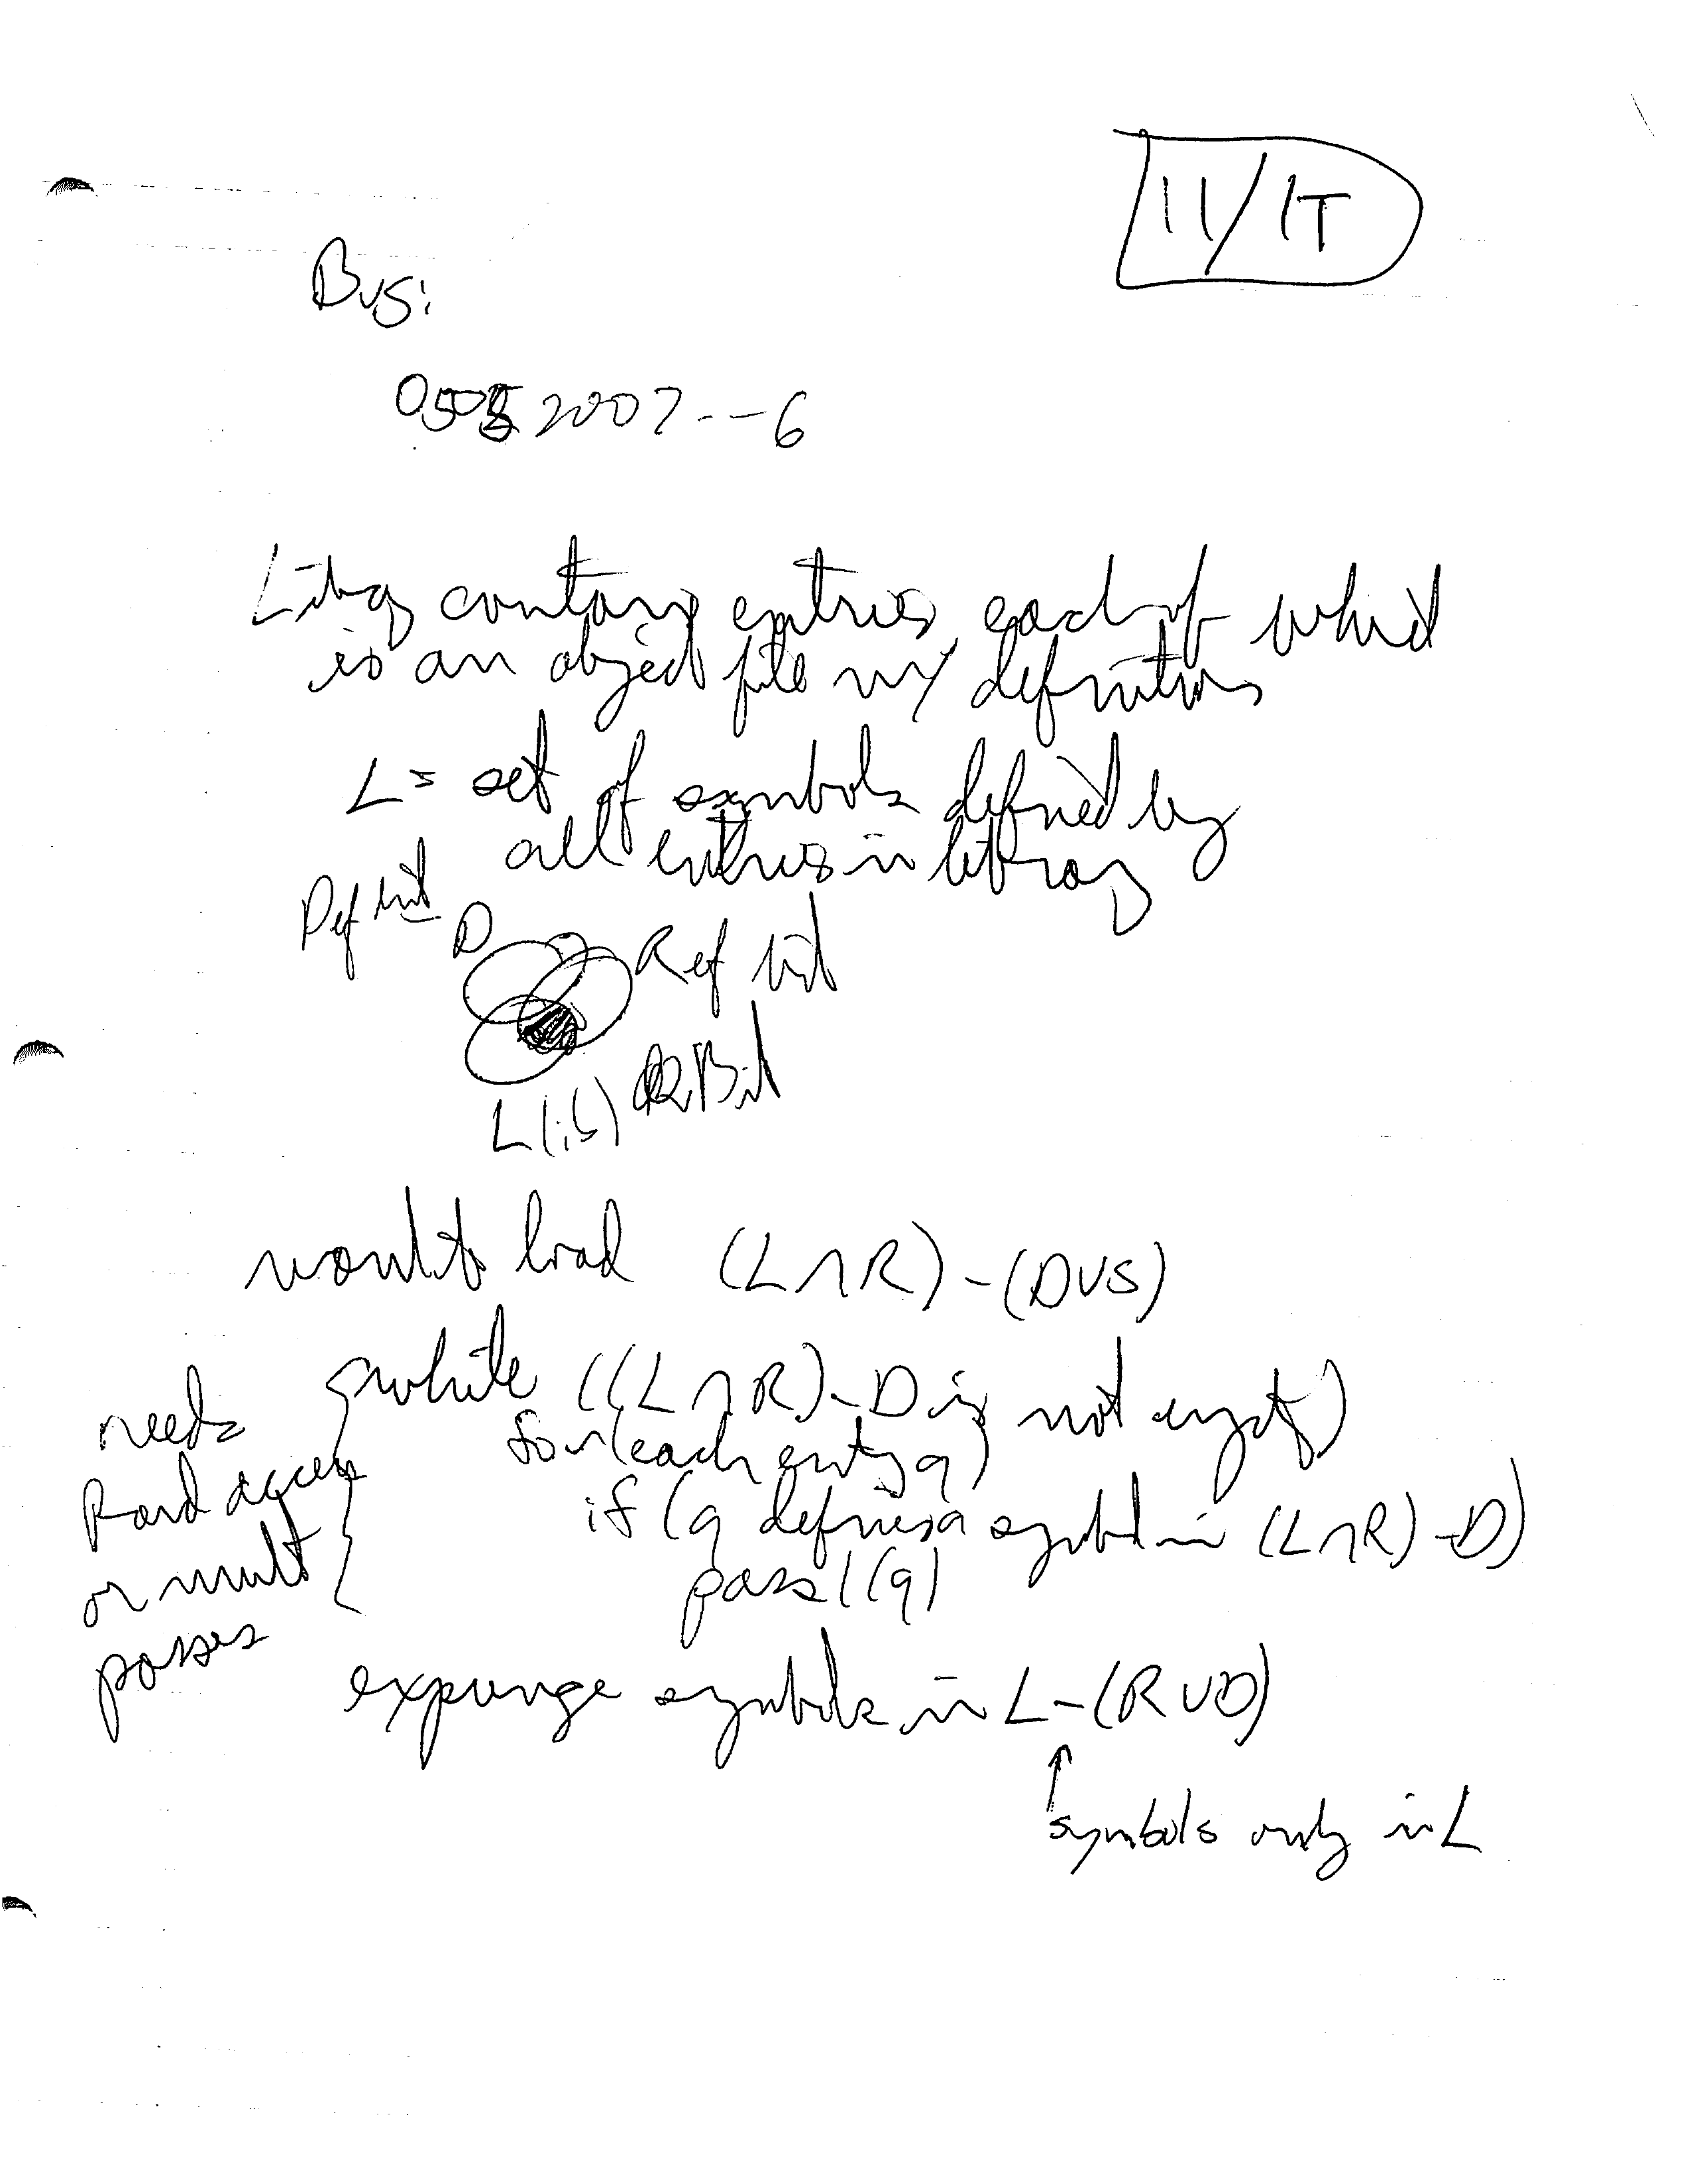 11/17
Bus:
2007--6
Library contains entries, each of which
is an object file w/ definitions
L = set of symbols defined by
all entries in library
Def bit D
Ref bit
L(ib) Bit
want to load (L∩R)-(DUS)
while ((L∩R)-D is not empty)
for(each entry q)
if (q defines a symbol in (L∩R)-D)
pass1(q)
needs
Rand access
or mult
passes
expunge symbols in L-(RUD)
↑
symbols only in L